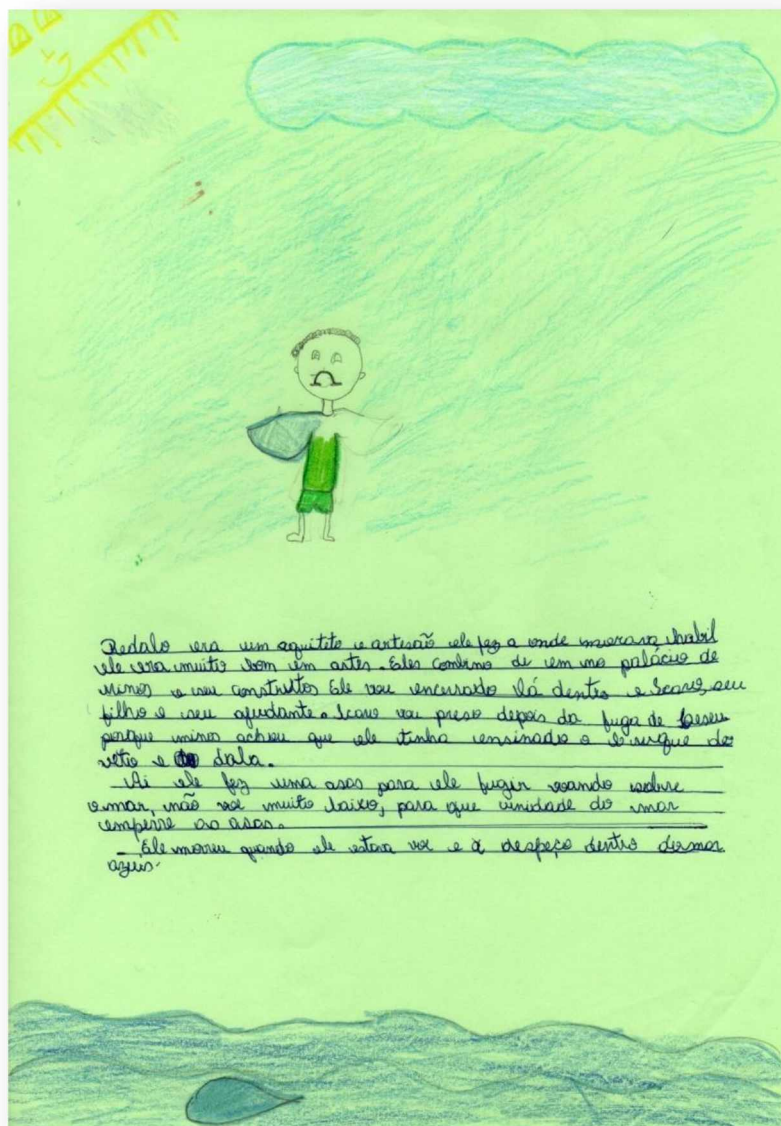 Dedalo era um aquiteto e artesão ele fez a onde morava, habil
ele era muito bom em artes. Eles combino de em no palácio de
minos e seu construitos Ele vou encerrado lá dentro e Icaro, seu
filho e seu ajudante. Icaro vai preso depois da fuga de Teseu
porque minos achou que ele tinha ensinado o de
e dala.
Ai ele fez uma asas para ele fugir voando sobre
o mar, não voe muito baixo, para que umidade do mar
emperre as asas.
Ele morreu quando ele estava voe e a despeço dentro do mar
azuis.